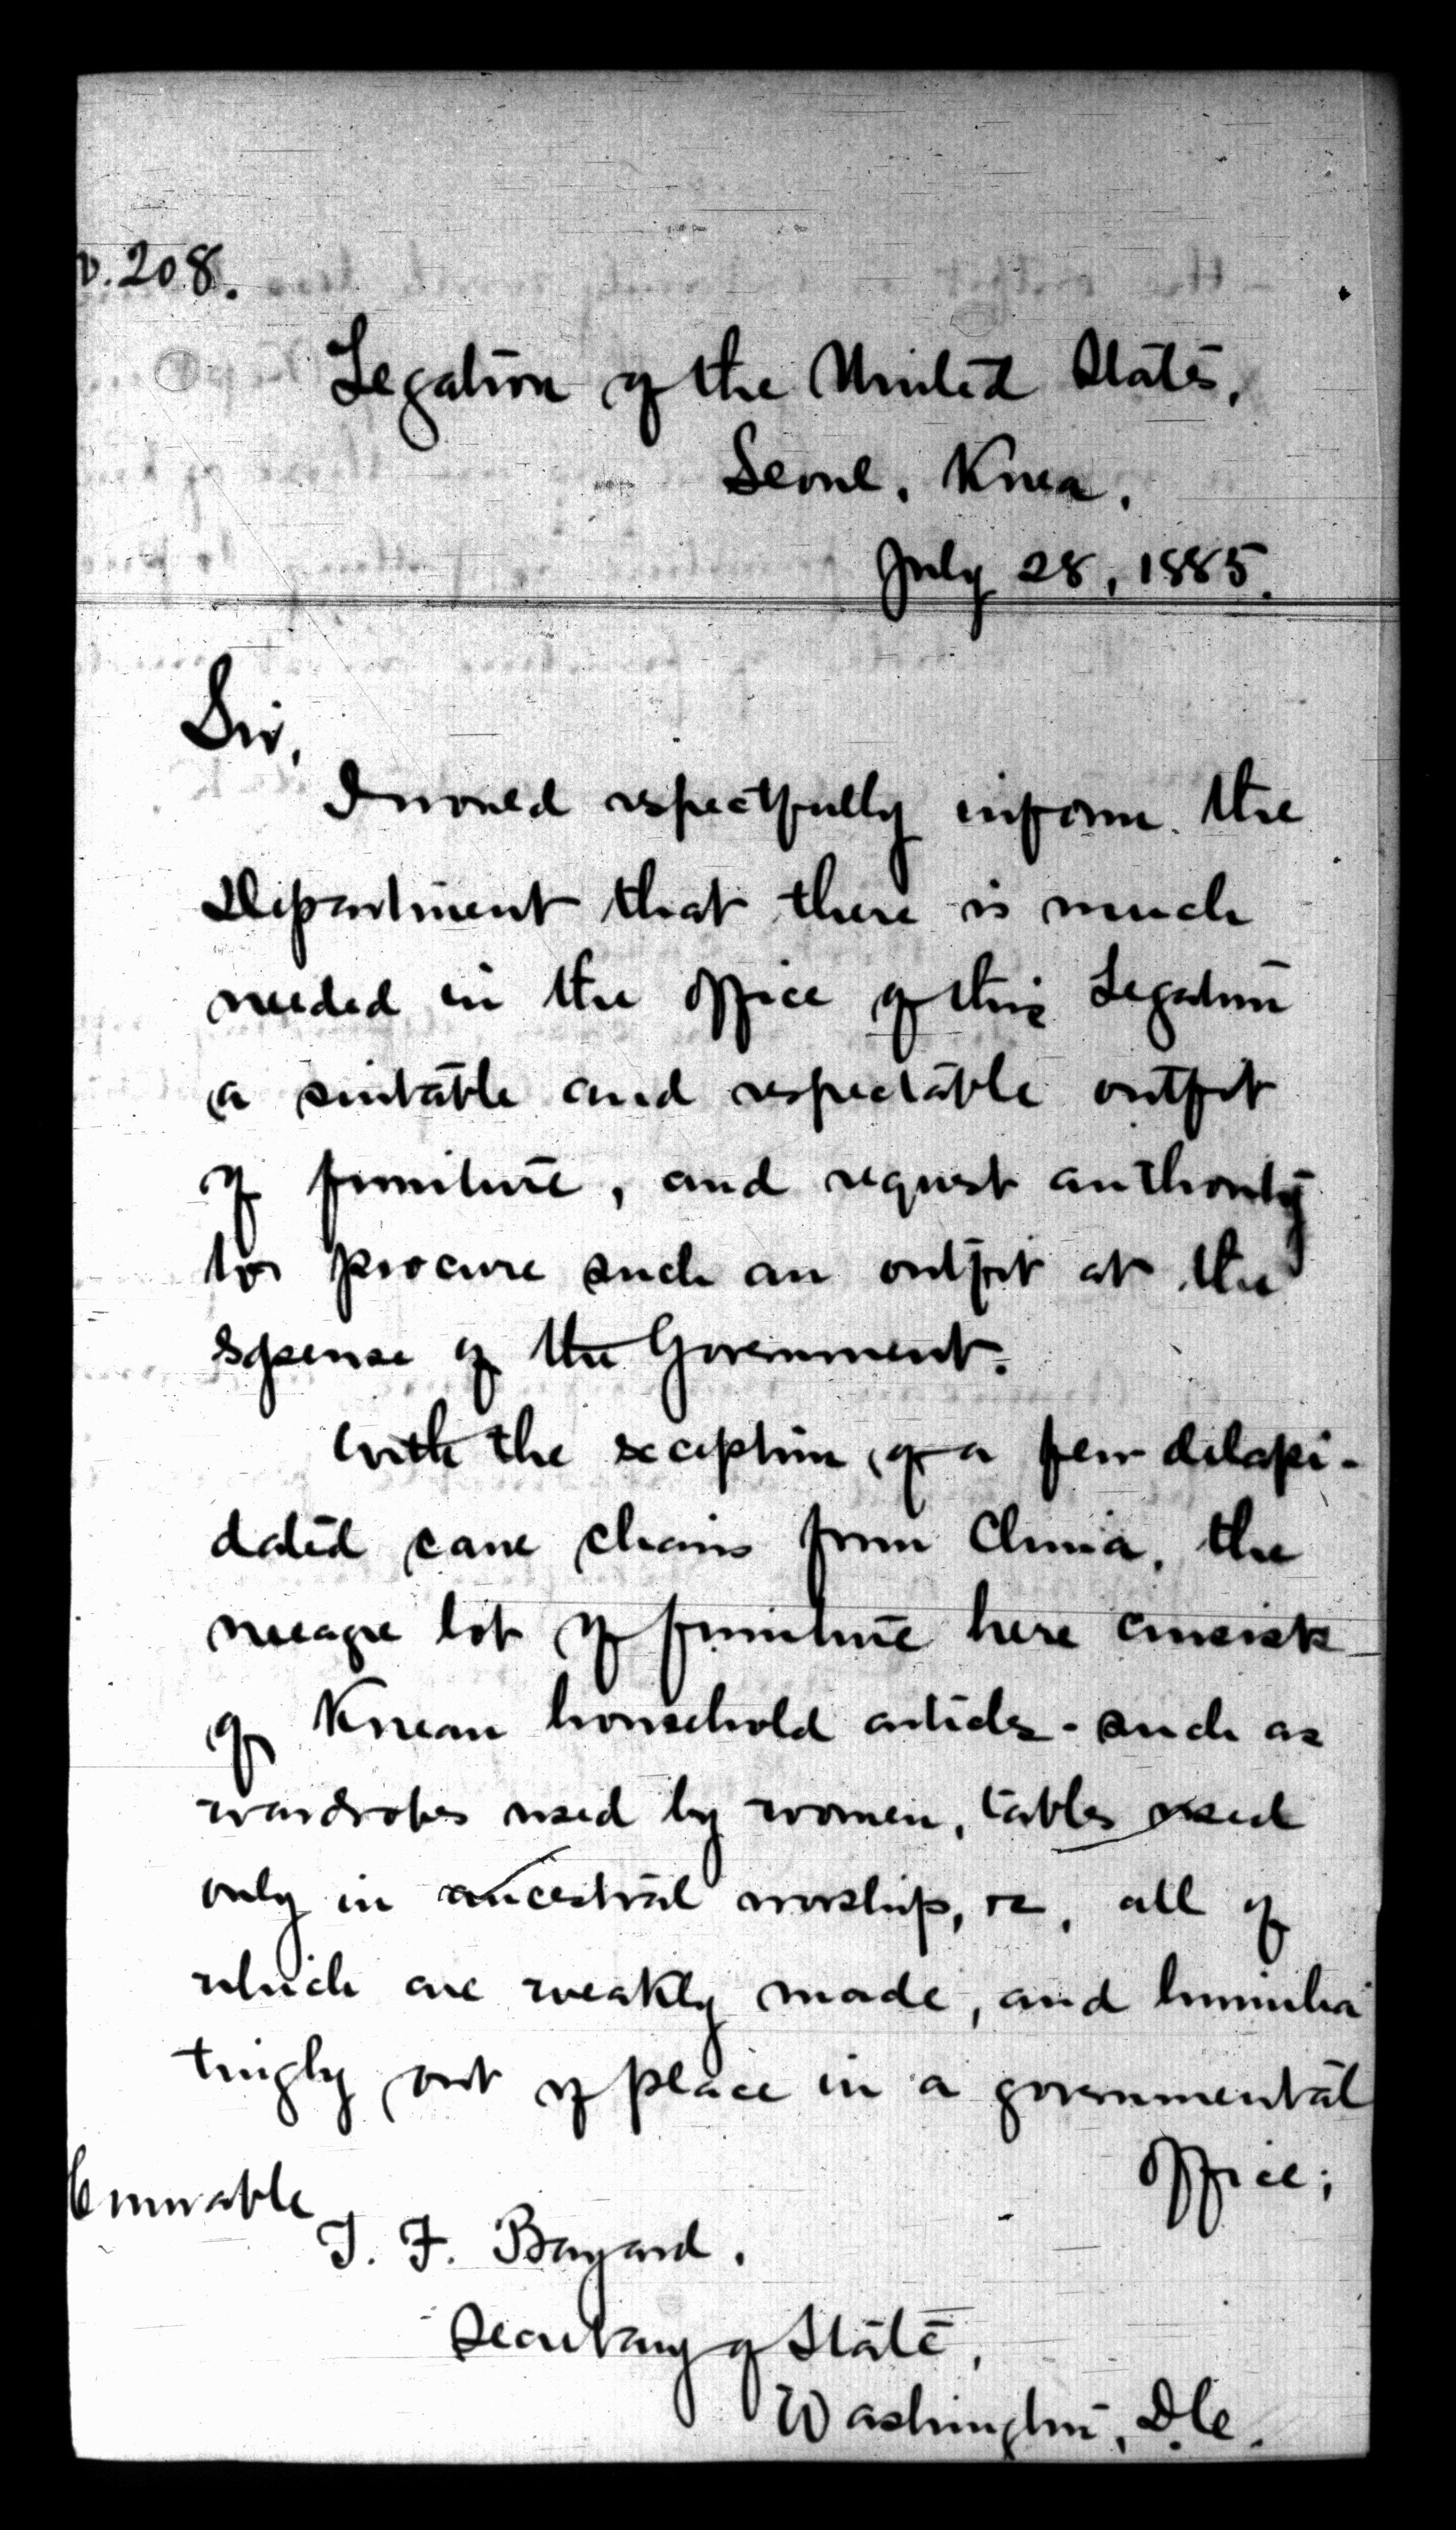 o. 208.
Legation of the United States,
Seoul, Korea,
July 28, 1885.
Sir,
I would respectfully inform the
Department that there is much
needed in the office of this Legation
a suitable and respectable outfit
of furniture, and request authority
to procure such an outfit at the
expense of the Government.
With the exception of a few dilapi-
dated cane chairs from China, the
meagre lot of furniture here consists
of Korean household articles - such as
wardrobes used by women, tables used
only in ancestral worship, &c, all of
which are weakly made, and humilia
tingly out of place in a governmental
office;
onorable
T. F. Bayard,
Secretary of State,
Washington, D.C.